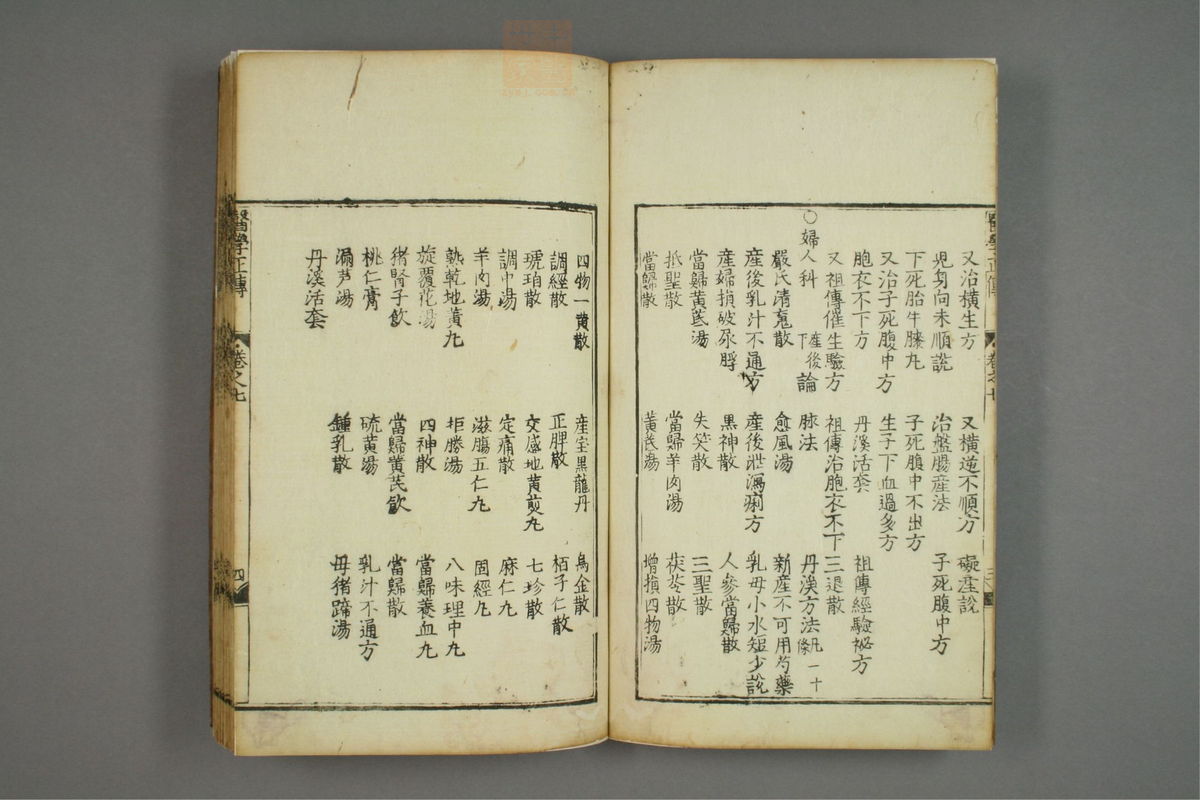 又治横生方　又横逆不順方　礙產說
児身向未順說　治盤腸產法　子死腹中方
下死胎牛膝丸　子死腹中不出方
又治子死腹中方　生子下血過多方
胞衣不下方　丹溪活套　祖傳經驗祕方
又祖傳催生驗方　祖傳治胞衣不下三退散
○婦人科下產後論　脉法　丹溪方法凡一十條
嚴氏清䰟散　愈風湯　新產不可用芍藥
產後乳汁不通方　產後泄瀉痢方　乳母小水短少說
產婦損破尿脬　黑神散　人參當歸散
當歸黃茋湯　失笑散　三聖散
抵聖散　當歸羊肉湯　茯苓散
當歸散　黃茋湯　增損四物湯
醫學正傳　卷之七　三
四物一黃散　產宝黑龍丹　烏金散
調經散　正脾散　栢子仁散
琥珀散　交感地黃煎丸　七珍散
調中湯　定痛散　麻仁丸
羊肉湯　滋腸五仁丸　固經丸
熟乾地黃丸　拒勝湯　八味理中丸
旋覆花湯　四神散　當歸養血丸
猪腎子飲　當歸黃芪飲　當歸散
桃仁膏　硫黃湯　乳汁不通方
漏芦湯　鍾乳散　母猪蹄湯
丹溪活套
醫學正傳　卷之七　四